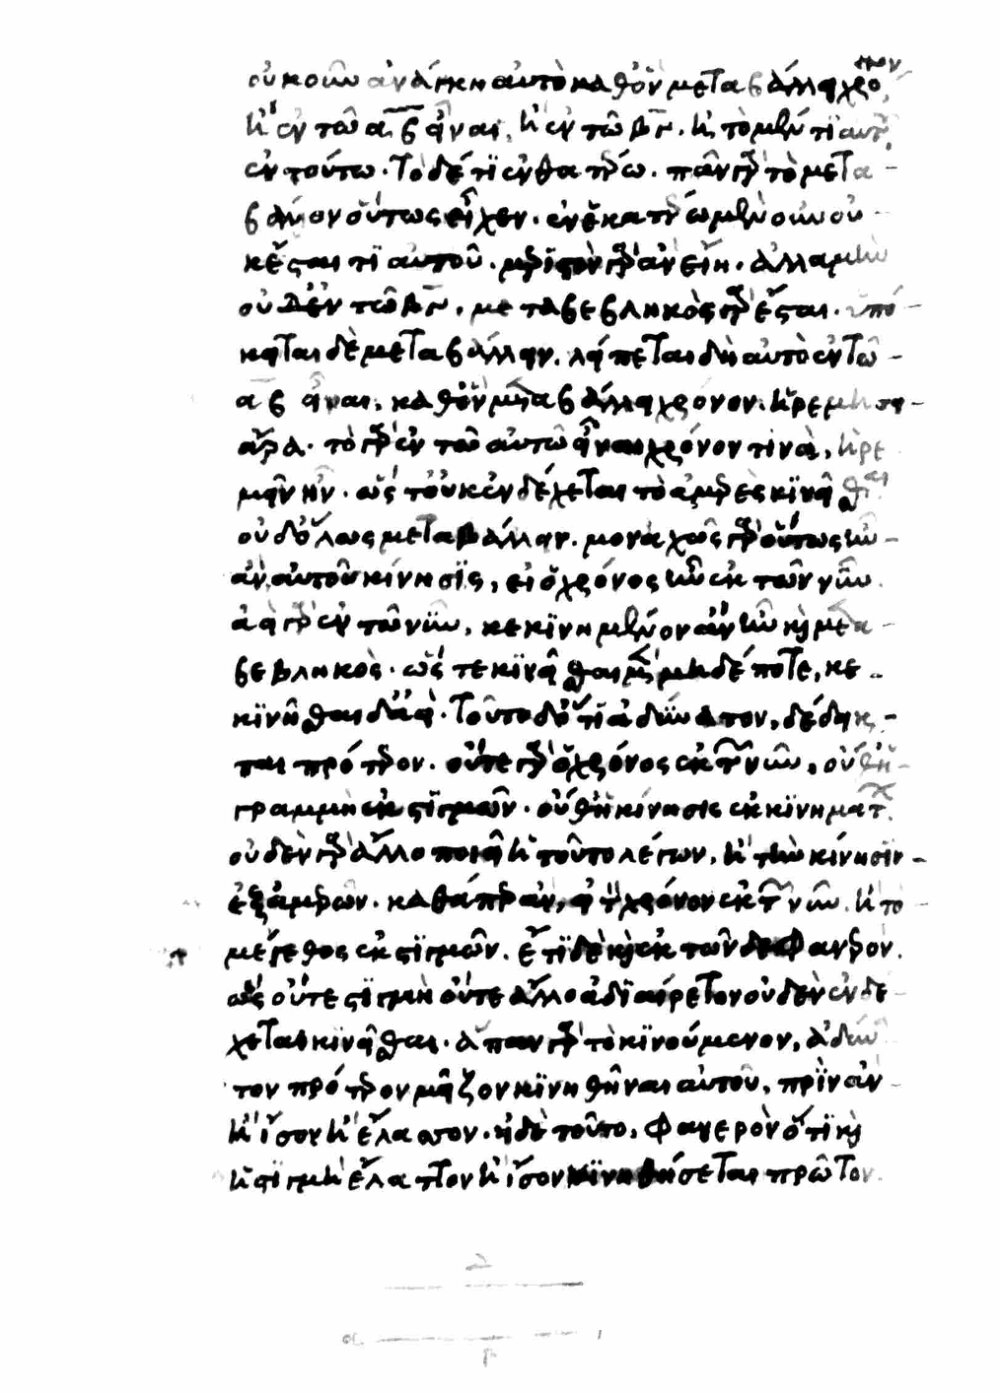 οὐκοῦν ἀνάγκη αὐτὸ καθ' ὃν μεταβάλλει χρόνον
ἢ ἐν τῶ αβ εἶναι, ἢ ἐν τῶ βγ. ἢ τὸ μέν τι αὐτοῦ
ἐν τούτω. τὸ δέ τι ἐν θατέρω. πᾶν γὰρ τὸ μετα
βάλλον οὕτως εἶχεν. ἐν ἑκατέρω μὲν οὖν οὐ
κ ἔσται τι αὐτοῦ. μεριστὸν γὰρ ἂν εἴη. ἀλλὰ μὴν
οὐδ' ἐν τῶ βγ. μεταβεβληκὸς γὰρ ἔσται. ὑπό
κειται δὲ μεταβάλλειν. λείπεται δὴ αὐτὸ ἐν τῶ
αβ εἶναι, καθ' ὃν μεταβάλλει χρόνον. ἠρεμήσει
ἄρα. τὸ γὰρ ἐν τῶ αὐτῶ εἶναι χρόνον τινὰ, ἠρε
μεῖν ἦν. ὥστ' οὐκ ἐνδέχεται τὸ ἀμερὲς κινεῖσθαι
οὐδ' ὅλως μεταβάλλειν. μοναχῶς γὰρ οὕτως ἦν
ἂν αὐτοῦ κίνησις, εἰ ὁ χρόνος ἦν ἐκ τῶν νῦν.
ἀεὶ γὰρ ἐν τῶ νῦν, κεκινημένον ἂν ἦν καὶ μετα
βεβληκὸς. ὥστε κινεῖσθαι μὲν μηδέποτε, κε
κινῆσθαι δ' ἀεὶ. τοῦτο δ' ὅτι ἀδύνατον, δέδεικ
ται πρότερον. οὔτε γὰρ ὁ χρόνος ἐκ τῶν νῦν, οὔθ' ἡ
γραμμὴ ἐκ στιγμῶν. οὔθ' ἡ κίνησις ἐκ κινημάτων.
οὐδὲν γὰρ ἄλλο ποιεῖ ὁ τοῦτο λέγων, ἢ τὴν κίνησιν
ἐξ ἀμερῶν. καθάπερ ἂν, εἰ τὸν χρόνον ἐκ τῶν νῦν. ἢ τὸ
μέγεθος ἐκ στιγμῶν. ἔτι δὲ καὶ ἐκ τῶνδε φανερὸν.
ὡς οὔτε στιγμὴ οὔτε ἄλλο ἀδιαίρετον οὐδὲν ἐνδέ
χεται κινεῖσθαι. ἅπαν γὰρ τὸ κινούμενον, ἀδύνα
τον πρότερον μεῖζον κινηθῆναι αὐτοῦ, πρὶν ἂν
ἢ ἴσον ἢ ἔλαττον. εἰ δὲ τοῦτο, φανερὸν ὅτι καὶ
ἡ στιγμὴ ἔλαττον ἢ ἴσον κινηθήσεται πρῶτον.